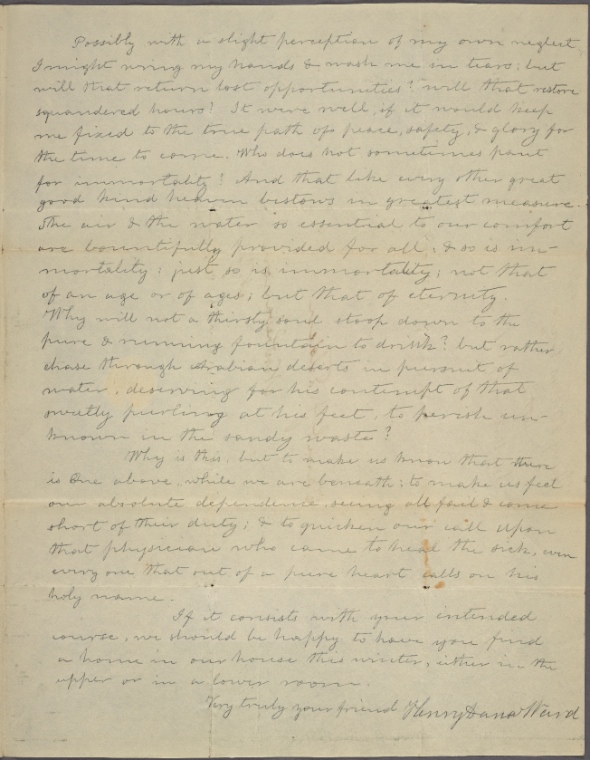 Possibly with a slight perception of my own neglect,
I might wring my hands & wash me in tears; but
will that return lost opportunities? will that restore
squandered hours? It were well, if it would keep
me fixed to the true path of peace, safety, & glory for
the time to come. Who does not sometimes pant
for immortality? And that like every other great
good kind heaven bestows in greatest measure.
The air & the water so essential to our comfort
are bountifully provided for all, & so is im-
mortality; just so is immortality; not that
of an age or of ages; but that of eternity.
Why will not a thirsty soul stoop down to the
pure & running fountain to drink? but rather
chase through Arabian deserts in pursuit of
water, deserving for his contempt of that
sweetly purling at his feet, to perish un-
known in the sandy waste?
Why is this, but to make us know that there
is One above, while we are beneath; to make us feel
our absolute dependence, seeing all fail & come
short of their duty; & to quicken our call upon
that physician who came to heal the sick, even
every one that out of a pure heart calls on his
holy name.
If it consists with your intended
course, we should be happy to have you find
a home in our house this winter, either in the
upper or in a lower room.
Very truly your friend Henry Dana Ward